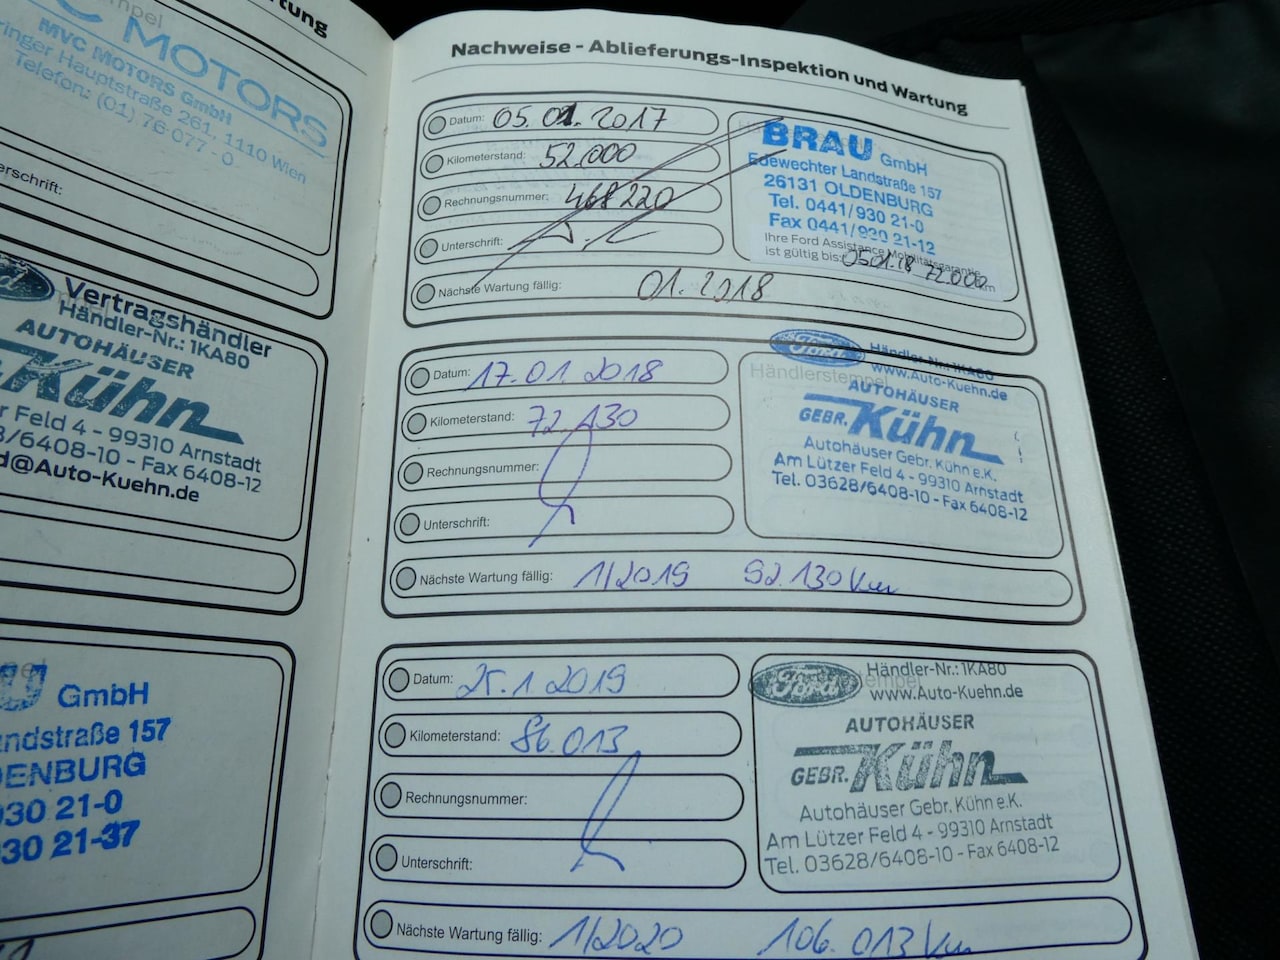 rtung
C MOTORS
MVC MOTORS GmbH
ringer Hauptstraße 261, 1110 Wien
Telefon: (01) 76 077 - 0
erschrift:
Ford
Vertragshändler
Händler-Nr.: 1KA80
AUTOHÄUSER
Kühn
r Feld 4 - 99310 Arnstadt
8/6408-10 - Fax 6408-12
d@Auto-Kuehn.de
U GmbH
andstraße 157
DENBURG
930 21-0
930 21-37
Nachweise - Ablieferungs-Inspektion und Wartung
Datum: 05.01.2017
Kilometerstand: 52.000
Rechnungsnummer: 468220
Unterschrift:
Nächste Wartung fällig: 01.2018
BRAU GmbH
Edewechter Landstraße 157
26131 OLDENBURG
Tel. 0441/930 21-0
Fax 0441/930 21-12
Ihre Ford Assistance Mobilitätsgarantie
ist gültig bis: 05.01.18 72.000 km
Datum: 17.01.2018
Kilometerstand: 72.130
Rechnungsnummer:
Unterschrift:
Nächste Wartung fällig: 1/2019 92.130 km
Ford
Händler-Nr.: 1KA80
www.Auto-Kuehn.de
Händlerstempel
AUTOHÄUSER
GEBR. Kühn
Autohäuser Gebr. Kühn e.K.
Am Lützer Feld 4 - 99310 Arnstadt
Tel. 03628/6408-10 - Fax 6408-12
Datum: 25.1.2019
Kilometerstand: 86.013
Rechnungsnummer:
Unterschrift:
Nächste Wartung fällig: 1/2020 106.013 km
Ford
Händler-Nr.: 1KA80
www.Auto-Kuehn.de
AUTOHÄUSER
GEBR. Kühn
Autohäuser Gebr. Kühn e.K.
Am Lützer Feld 4 - 99310 Arnstadt
Tel. 03628/6408-10 - Fax 6408-12